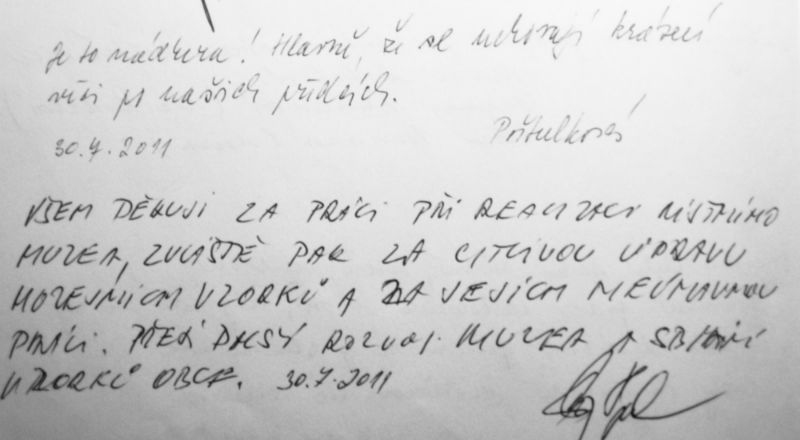 Je to nádhera! Hlavně, že se nehovají krásné
věci po našich půdách.
30.7.2011
VŠEM DĚKUJI ZA PRÁCI PŘI REALIZACI MÍSTNÍHO
MUZEA, ZVLÁŠTĚ PAK ZA CITLIVOU ÚPRAVU
A ZA JEJICH NEÚNAVNOU
PRÁCI. PŘEJI DALŠÍ ROZVOJ MUZEA A SBÍRÁNÍ
VZORKŮ OBCE. 30.7.2011